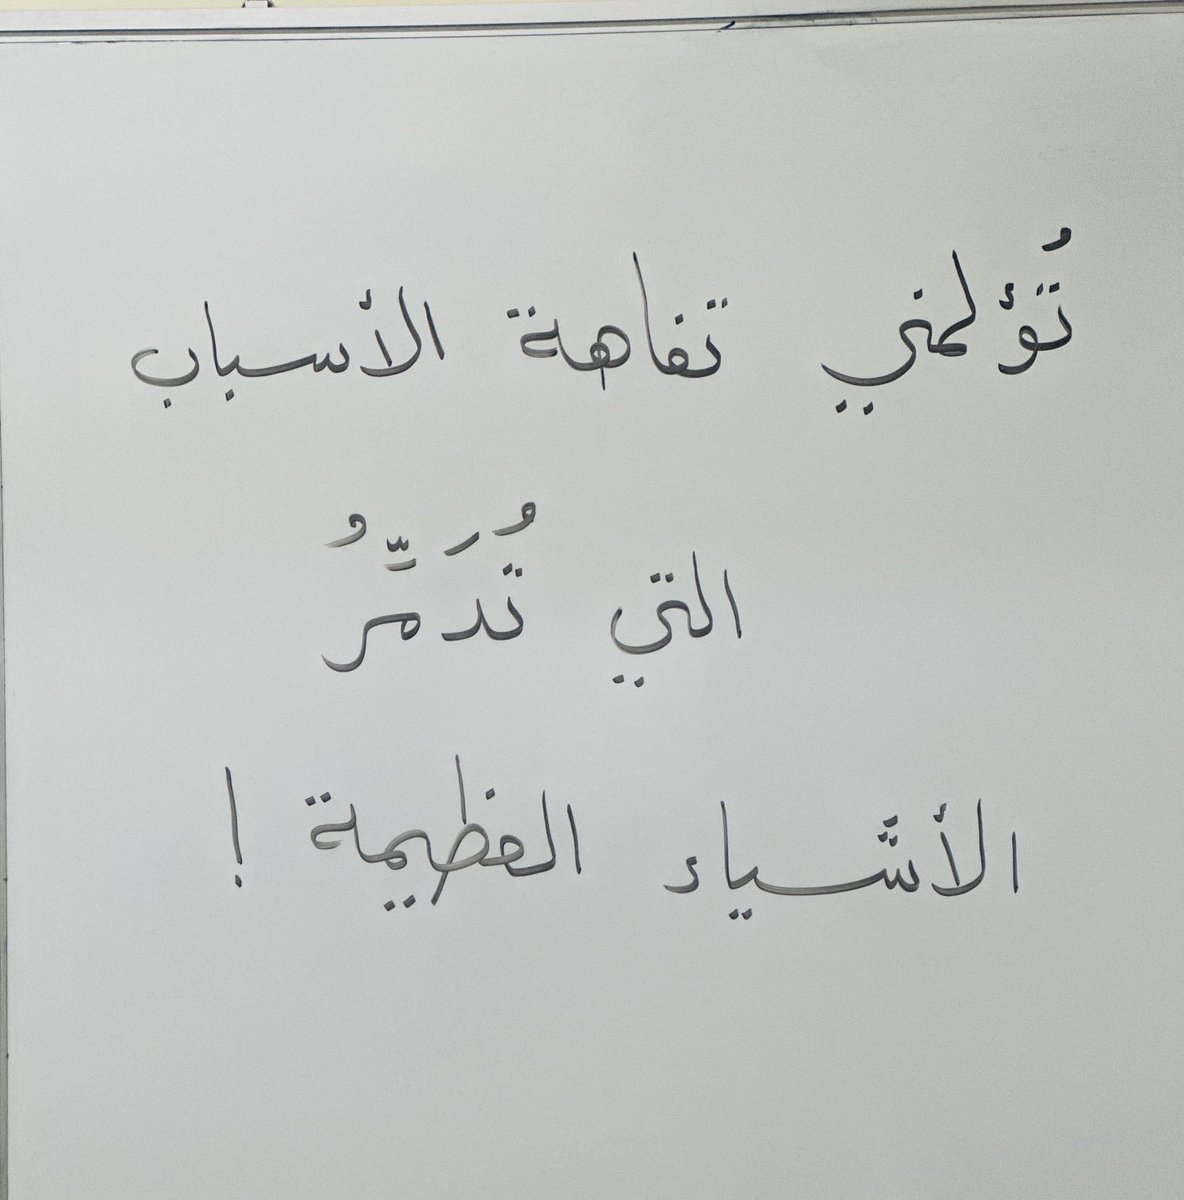 تُؤلمني تفاهة الأسباب
التي تُدَمِّرُ
الأشياء العظيمة !